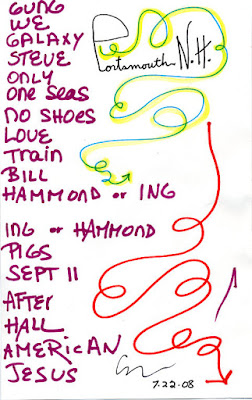 GUNG
WE
GALAXY
STEVE
Portsmouth N.H.
ONLY
ONE SEAS
NO SHOES
LOVE
TRAIN
BILL
HAMMOND or ING
ING or HAMMOND
PIGS
SEPT 11
AFTER
HALL
AMERICAN
JESUS
7.22.08